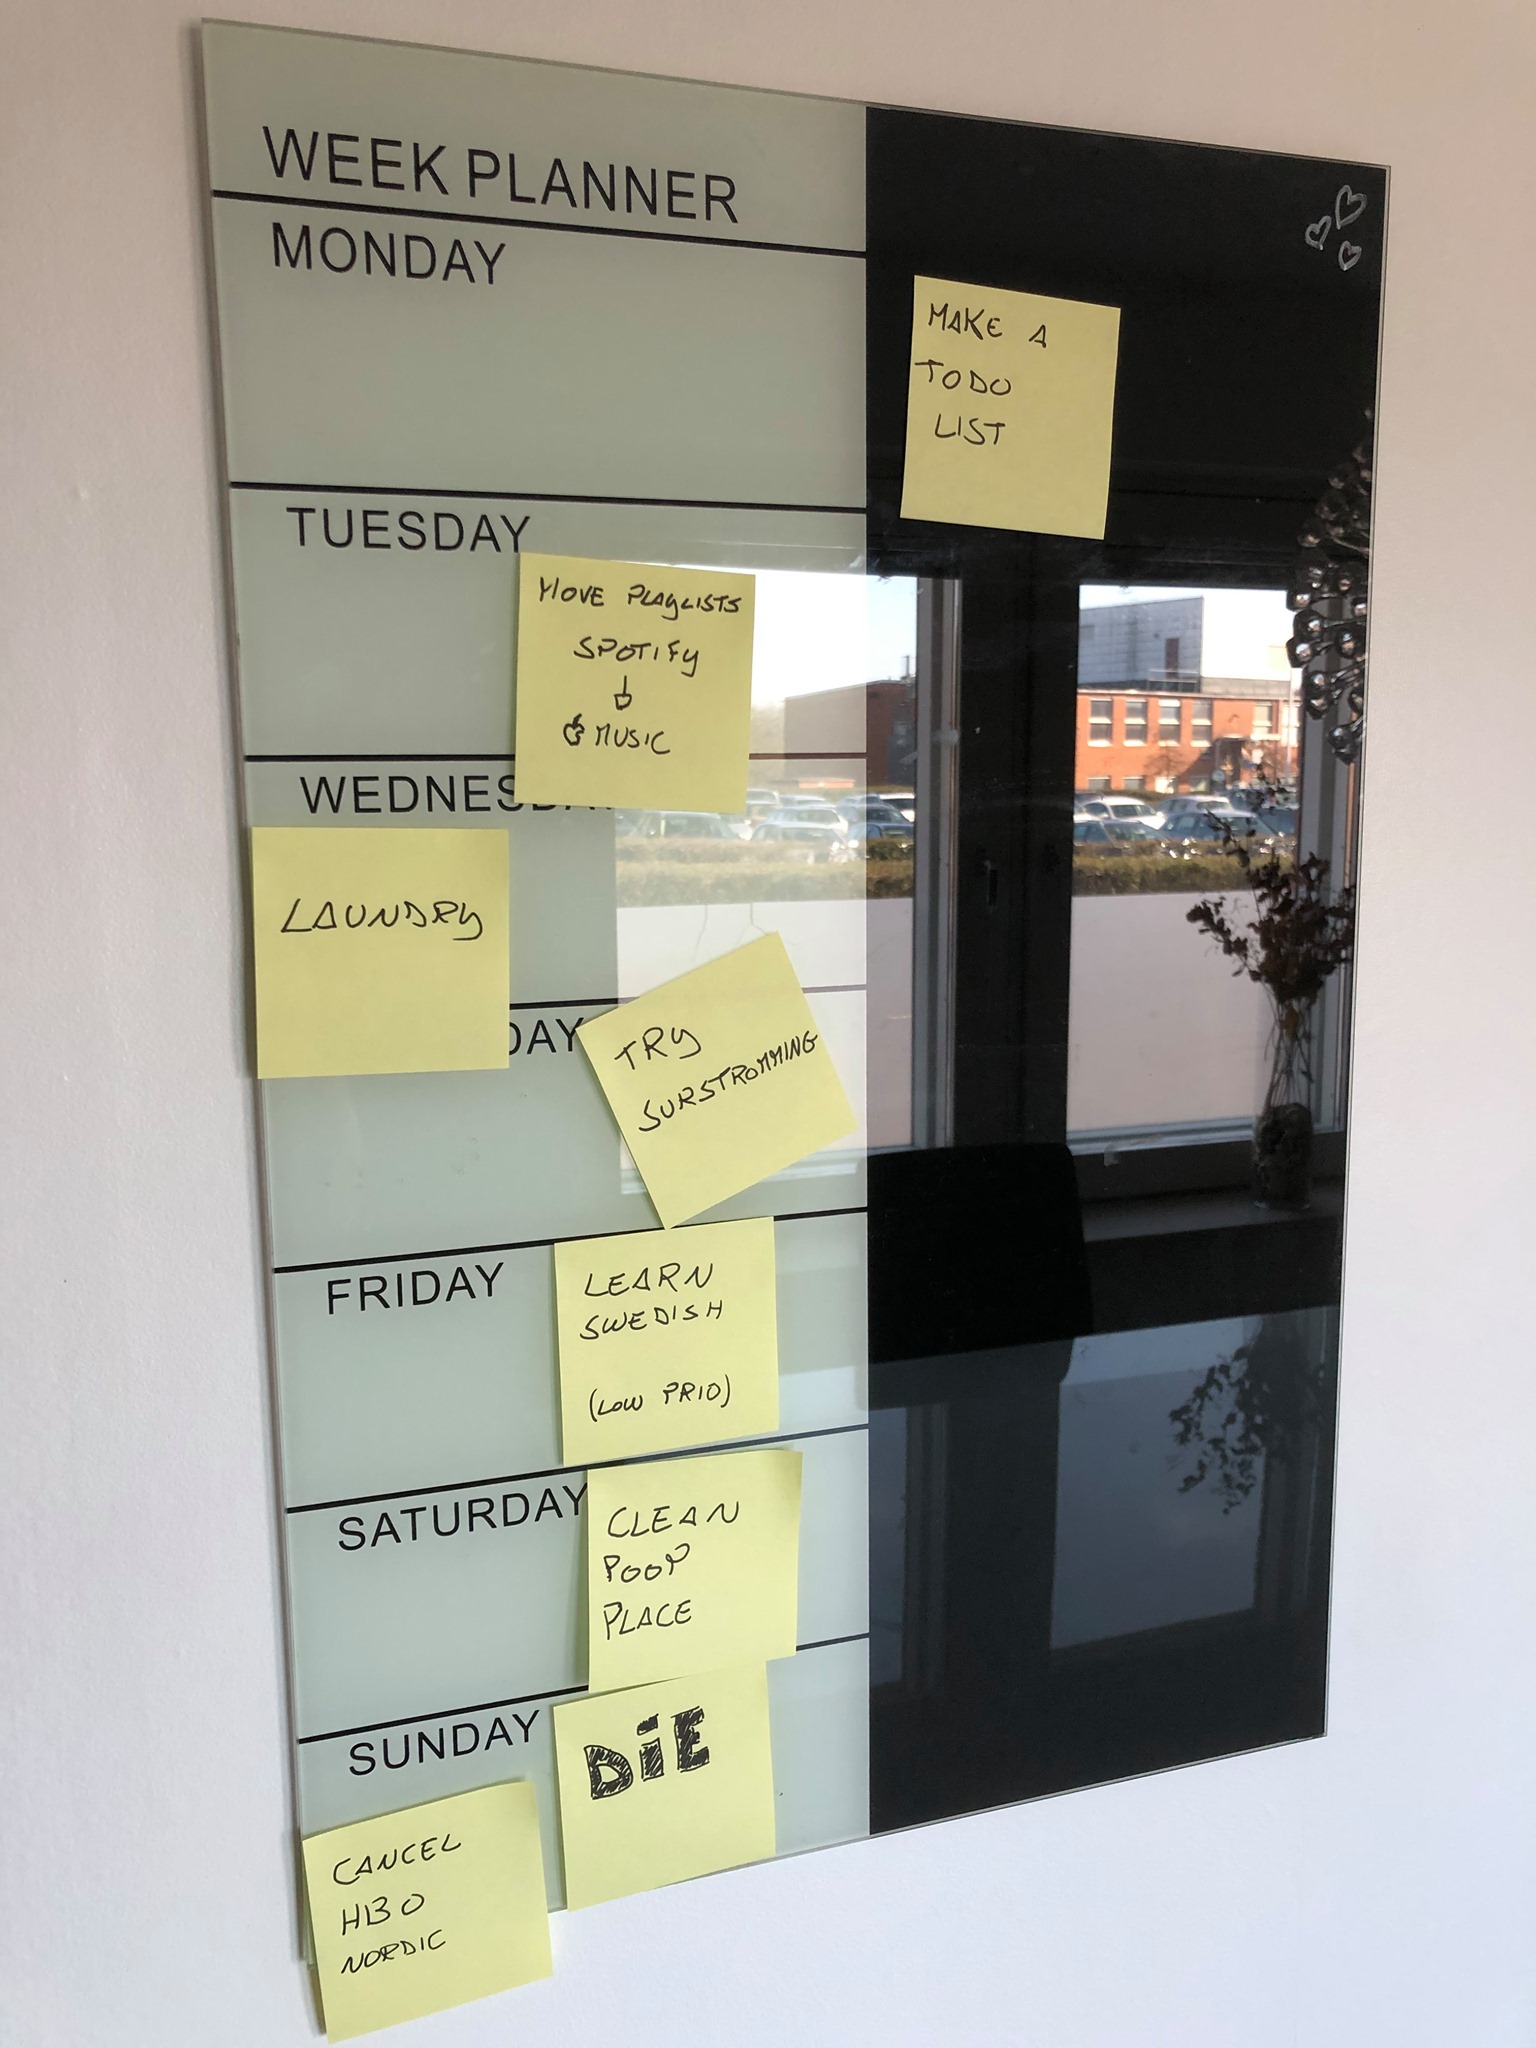 WEEK PLANNER
MONDAY
MAKE A
TODO
LIST
TUESDAY
MOVE PLAYLISTS
SPOTIFY
MUSIC
WEDNESDA
LAUNDRY
DAY
TRY
SURSTROMMING
FRIDAY
LEARN
SWEDISH
(LOW PRIO)
SATURDAY
CLEAN
POOP
PLACE
SUNDAY
DiE
CANCEL
HBO
NORDIC